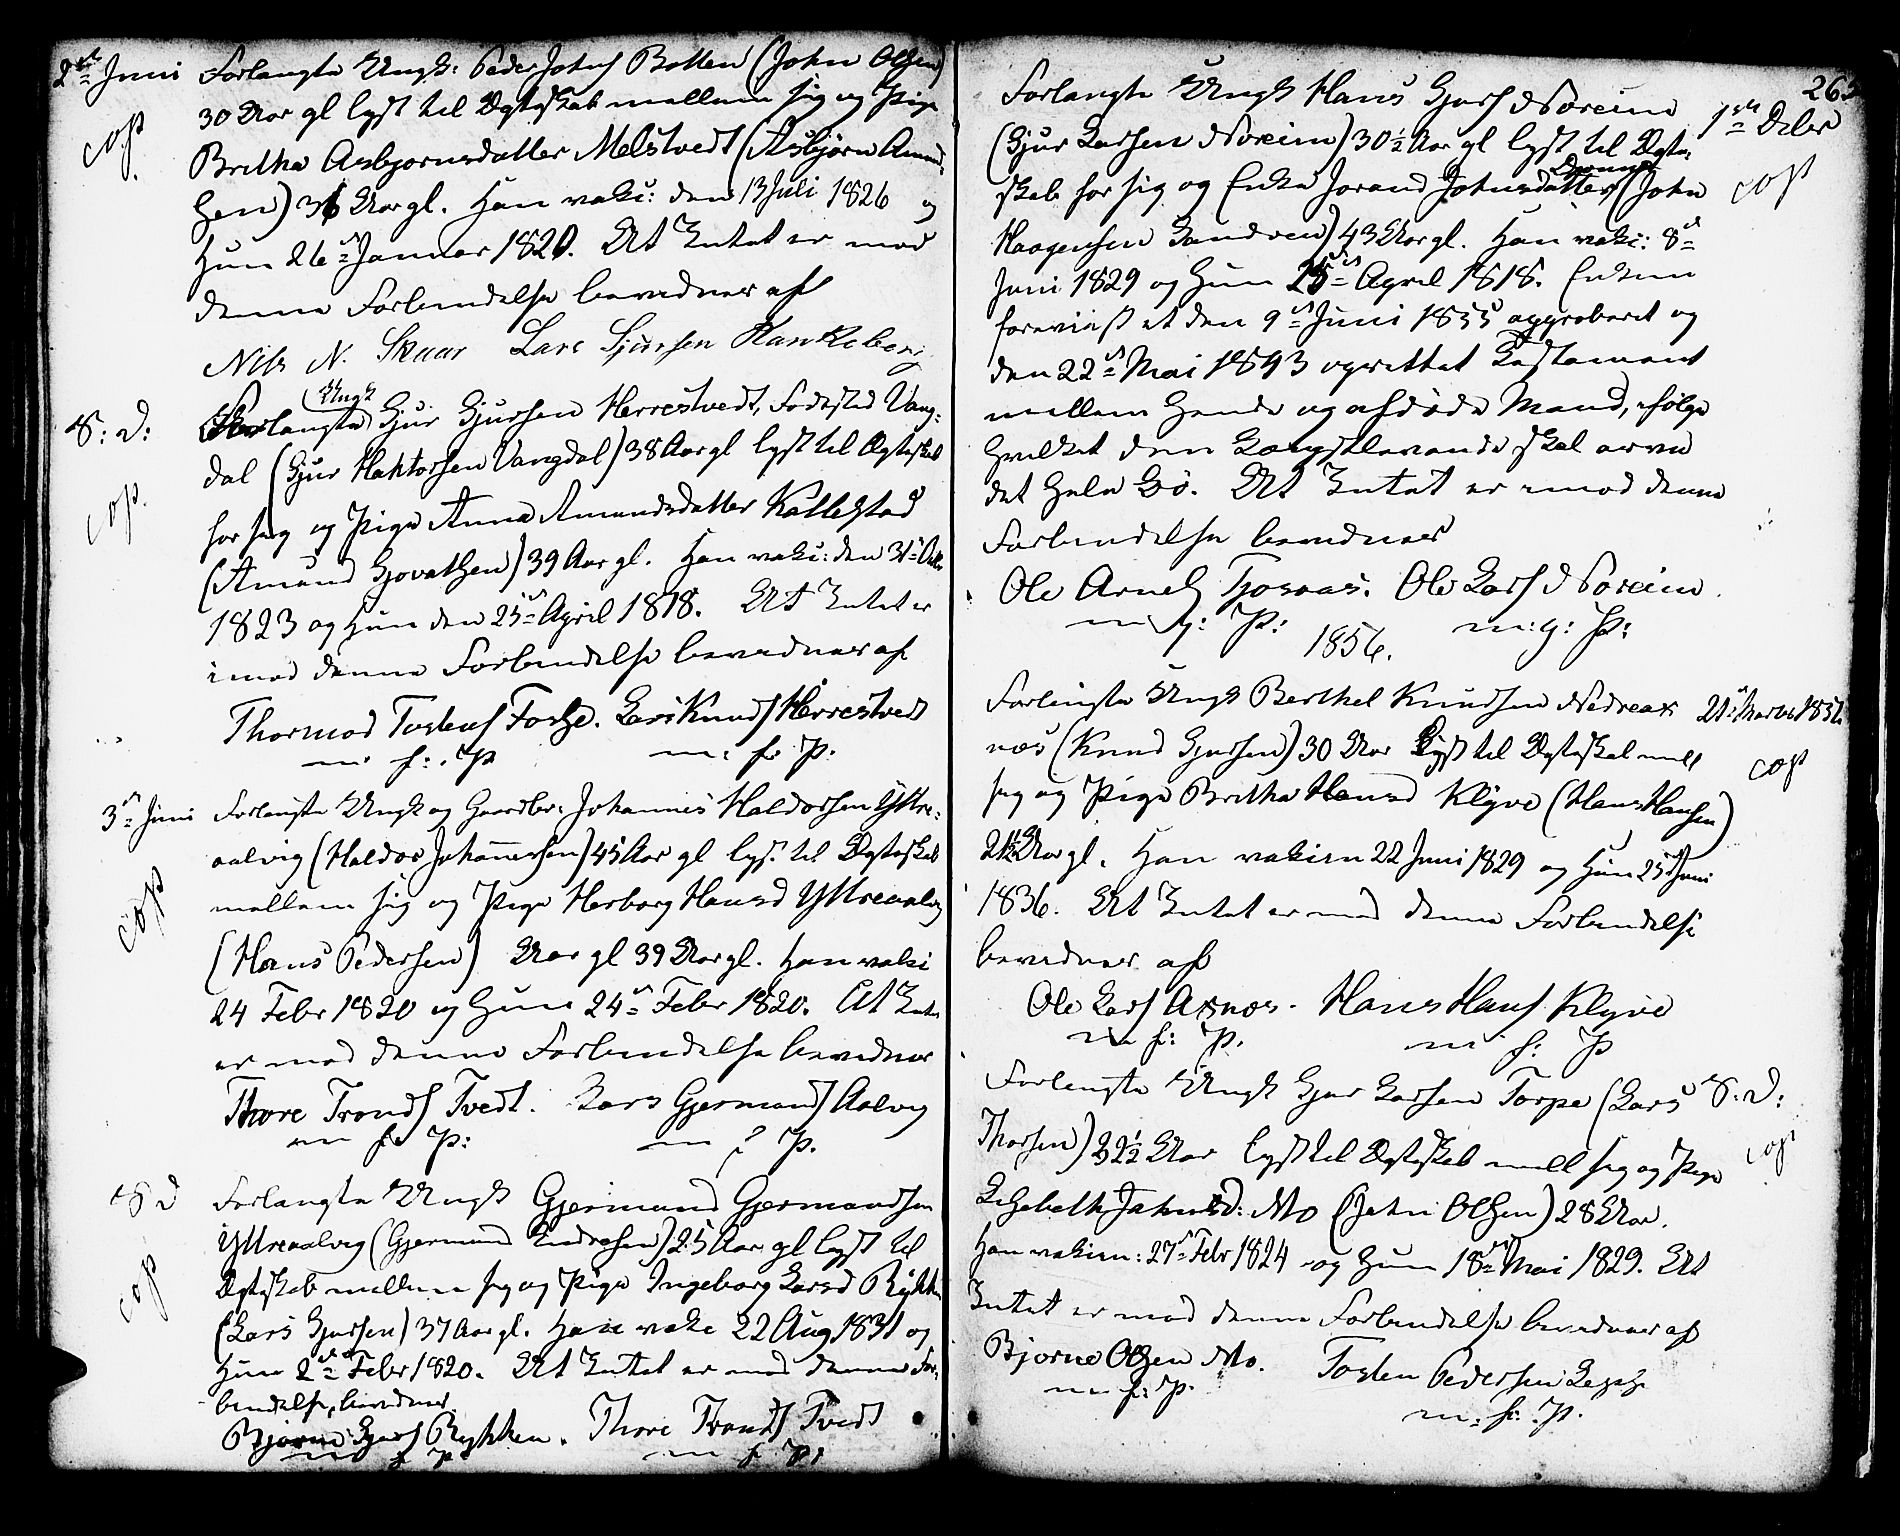 2den Juni Forlangte Ungk: Peder Johns Botten (John Olsen)
cop. 30 Aar gl lyst til Ægteskab mellem sig og Pige
Britha Asbjørnsdatter Melstvedt (Asbjørn Amund-
sen) 36 Aar gl. Han vakc: den 13 Juli 1826 og
Hun 26de Januar 1820. At Intet er mod
denne Forbindelse bevidner af
Nils N. Skaar Lars Sjursen Hankeberg
S: D: Forlangte Ungk Gjur Gjursen Herrestvedt, Fødested Vang-
dal (Gjur Haktorsen Vangdal) 38 Aar gl lyst til Ægteskab
cop. for sig og Pige Anna Amundsdatter Kallestad
(Amund Sjovatsen) 39 Aar gl. Han vakc: den 31te Octbr
1823 og Hun den 25de April 1818. At Intet er
imod denne Forbindelse bevidner af
Thormod Tostens Fosse. Lars Knuds Herrestvedt
m: f: P m: f: P:
3de Juni Forlangte Ungk og Gaardbr: Johannes Haldorsen Yttre-
aalvig (Haldor Johannessen) 45 Aar gl lyst til Ægteskab
cop mellem sig og Pige Herborg Hansd Yttreaalvig
(Hans Pedersen) Aar gl 39 Aar gl. Han vakc
24 Febr 1820 og Hun 24de Febr 1820. At Intet
er mod denne Forbindelse bevidner
Thore Tronds Tvedt. Lars Gjermunds Aalvig
m f: P: m f P.
S D Forlangte Ungk Gjermund Gjermundsen
Yttreaalvig (Gjermund Endresen) 25 Aar gl lyst til
cop Ægteskab mellem sig og Pige Ingeborg Larsd Rykken
(Lars Gjursen) 37 Aar gl. Han vakc 22 Aug 1831 og
Hun 2den Febr 1820. At Intet er mod denne For-
bindelse, bevidner
Bjørne Gjurs Rykken. Thore Tronds Tvedt
m f P m f P:
Forlangte Ungk Hans Gjurs Noreim 1ste Debr
(Gjur Larsen Noreim) 30½ Aar gl lyst til Ægte-
skab for sig og Enke Jorand Johnsdatter (John cop
Haagensen Sandven) 43 Aar gl. Han vakc: 8de
Juni 1829 og Hun 25de April 1818. Enken
foreviist et den 9de Juni 1855 approberet og
den 22de Mai 1843 oprettet Testament
mellem Hende og afdøde Mand, ifølge
hvilket den Længstlevende skal arve
det hele Bo. At Intet er imod denne
Forbindelse bevidner
Ole Arnes Tjosaas. Ole Lars Noreim
m: f: P: m: f: P:
1856.
Forlangte Ungk Berthel Knudsen Nedreax- 21de Marts 1856
næs (Knud Gjursen) 30 Aar lyst til Ægteskab mell
sig og Pige Britha Hansd Klyve (Hans Hansen) cop
Aar gl. Han vakcin 22 Juni 1829 og Hun 25 Juni
1836. At Intet er mod denne Forbindelse
bevidner af
Ole Lars Axnæs. Hans Hans Klyve
m f: P. m f: P
Forlangte Ungk Gjur Larsen Torpe (Lars S: D:
Thorsen) 32½ Aar lyst til Ægteskab mell sig og Pige cop
Lisabeth Johnsd: Mo (John Olsen) 28 Aar.
Han vakcin: 27de Febr 1824 og Hun 18de Mai 1829. At
Intet er mod denne Forbindelse bevidner af
Bjørne Olsen Mo. Tosten Pedersen
m f: P. m: f: P.